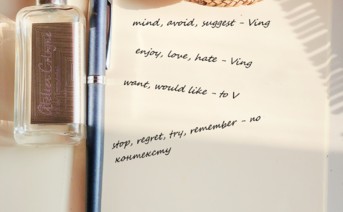 mind, avoid, suggest - Ving
enjoy, love, hate - Ving
want, would like - to V
stop, regret, try, remember - по
контексту
Atelier Cologne